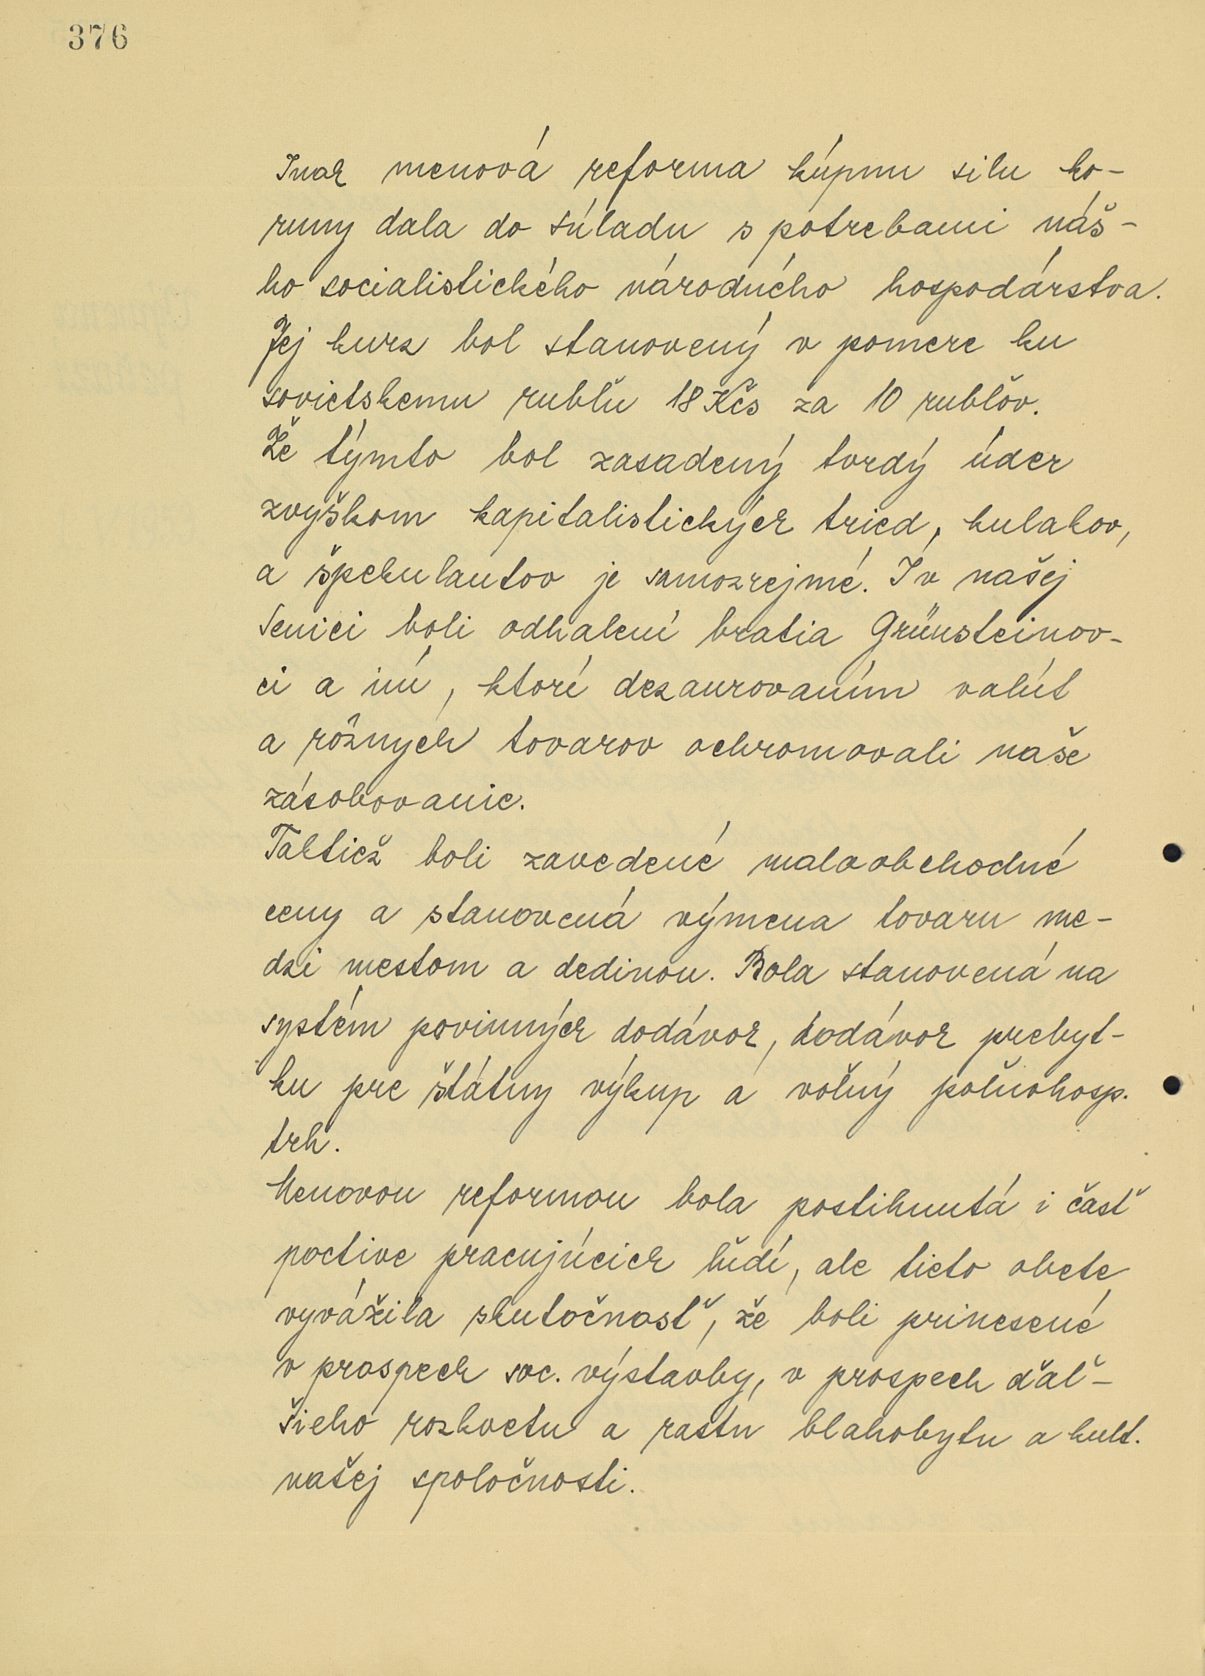 376
Inak menová reforma kúpnu silu ko-
runy dala do súladu s potrebami náš-
ho socialistického národného hospodárstva.
Jej kurz bol stanovený v pomere ku
sovietskemu rubľu 18 Kčs za 10 rubľov.
Že týmto bol zasadený tvrdý úder
zvyškom kapitalistických tried, kulakov,
a špekulantov je samozrejmé. I v našej
Senici boli odhalení bratia Grünsteinov-
ci a iní, ktorí dezaurovaním valút
a rôznych tovarov ochromovali naše
zásobovanie.
Taktiež boli zavedené maloobchodné
ceny a stanovená výmena tovaru me-
dzi mestom a dedinou. Bola stanovená na
systém povinných dodávok, dodávok prebyt-
ku pre štátny výkup a voľný poľnohosp.
trh.
Menovou reformou bola postihnutá i časť
poctive pracujúcich ľudí, ale tieto obete
vyvážila skutočnosť, že boli prinesené
v prospech soc. výstavby, v prospech ďaľ-
šieho rozkvetu a rastu blahobytu a kult.
našej spoločnosti.